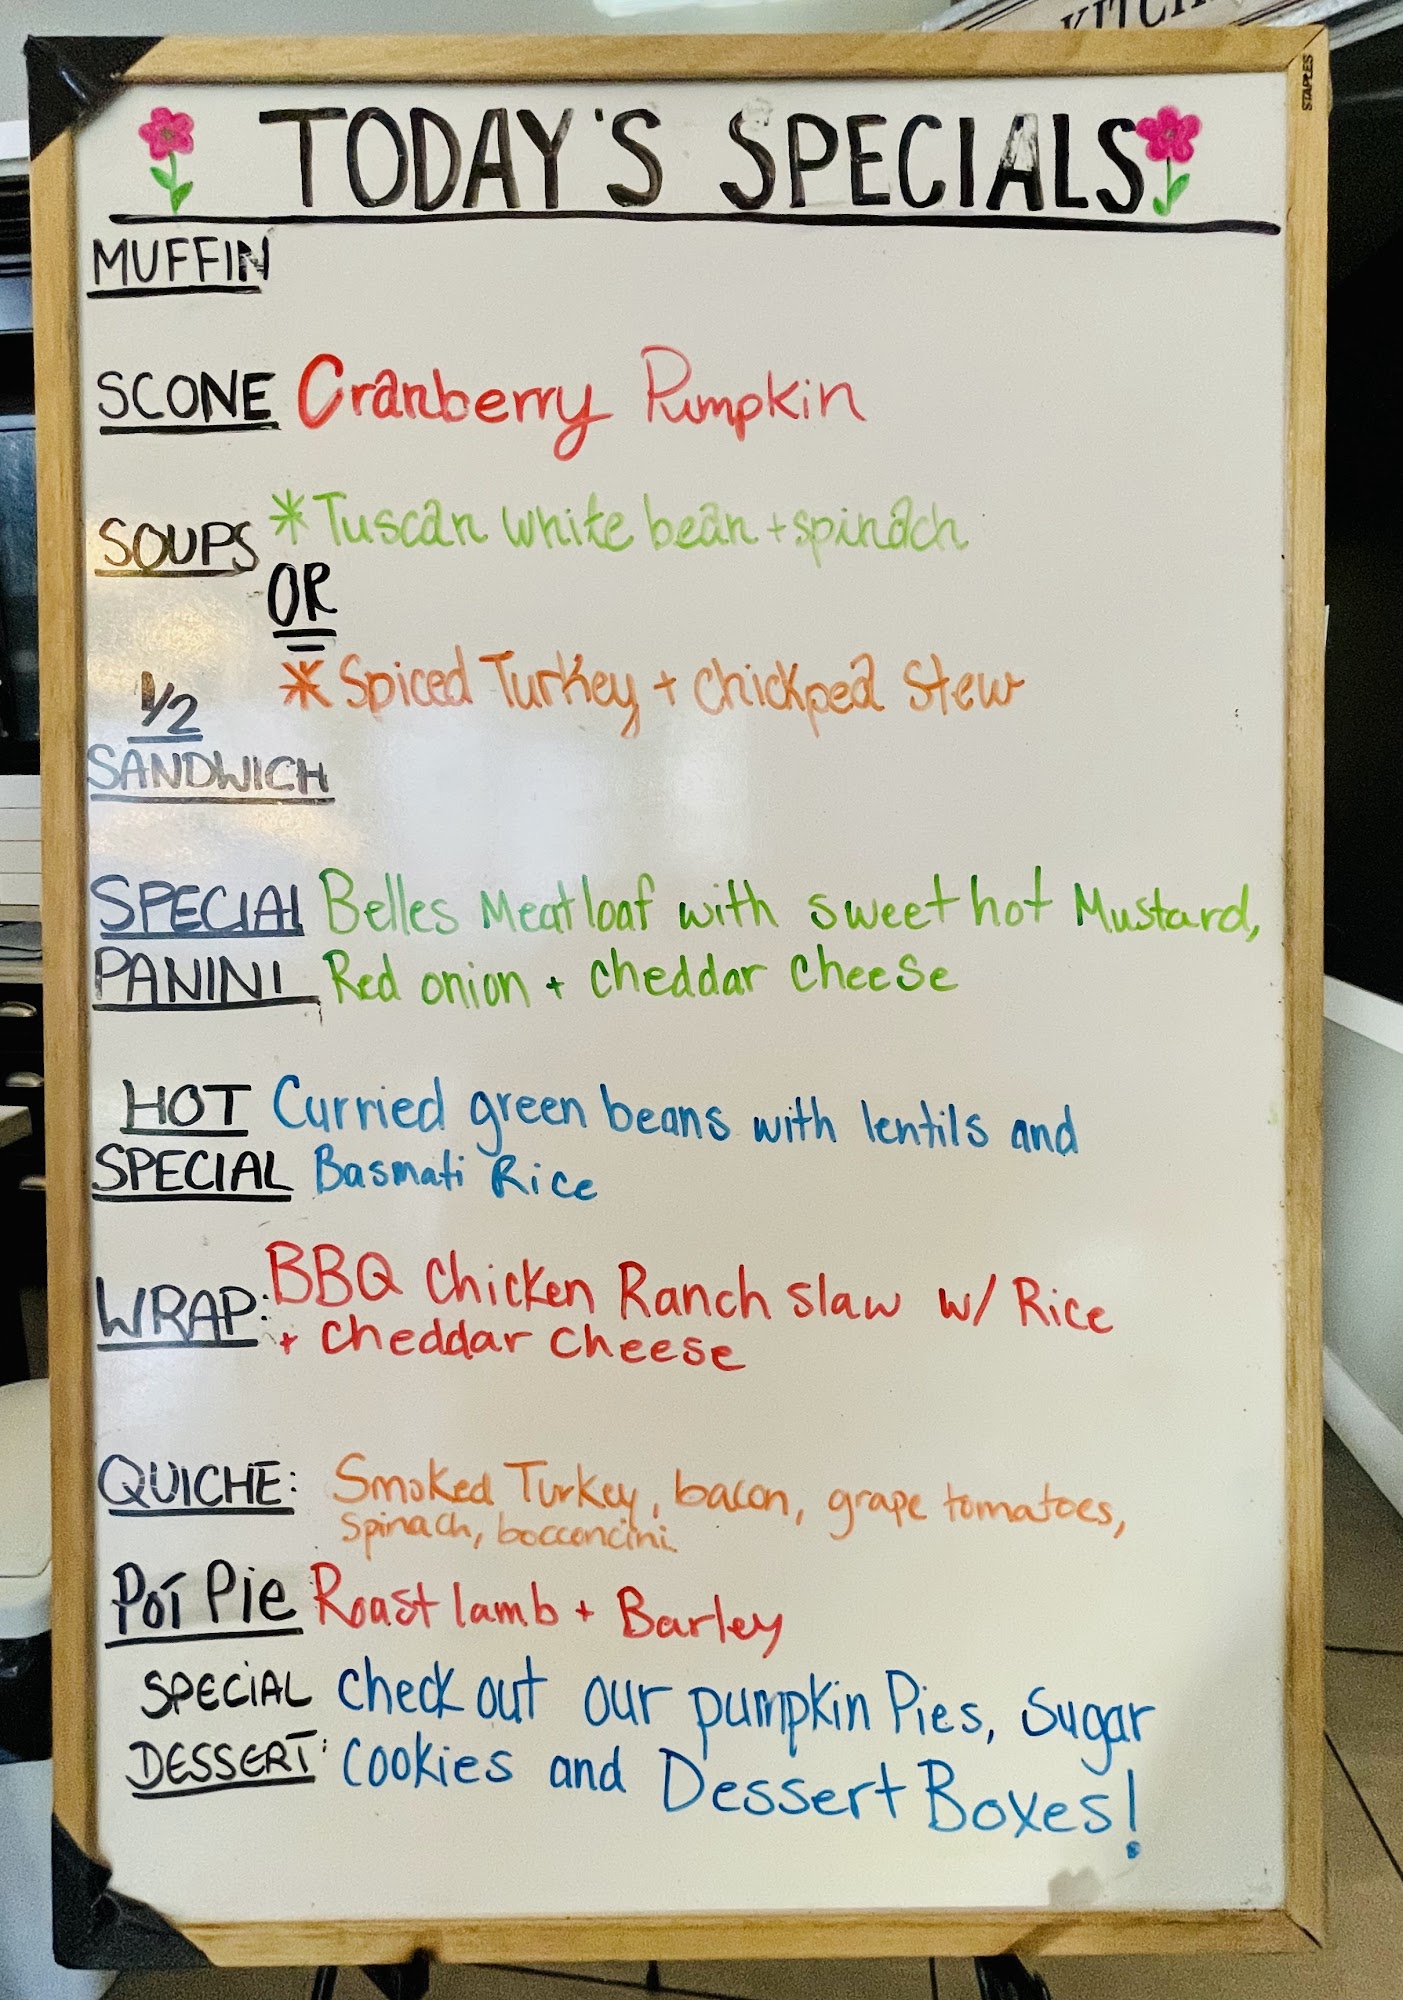 KITCH
STAPLES
TODAY'S SPECIALS
MUFFIN
SCONE Cranberry Pumpkin
SOUPS * Tuscan white bean + spinach
OR
* Spiced Turkey + Chickpea Stew
1/2
SANDWICH
SPECIAL Belles Meatloaf with sweet hot Mustard,
PANINI Red onion + cheddar cheese
HOT Curried green beans with lentils and
SPECIAL Basmati Rice
WRAP: BBQ Chicken Ranch slaw w/ Rice
+ cheddar cheese
QUICHE: Smoked Turkey, bacon, grape tomatoes,
spinach, bocconcini.
Pot Pie Roast lamb + Barley
SPECIAL check out our pumpkin Pies, Sugar
DESSERT: cookies and Dessert Boxes!